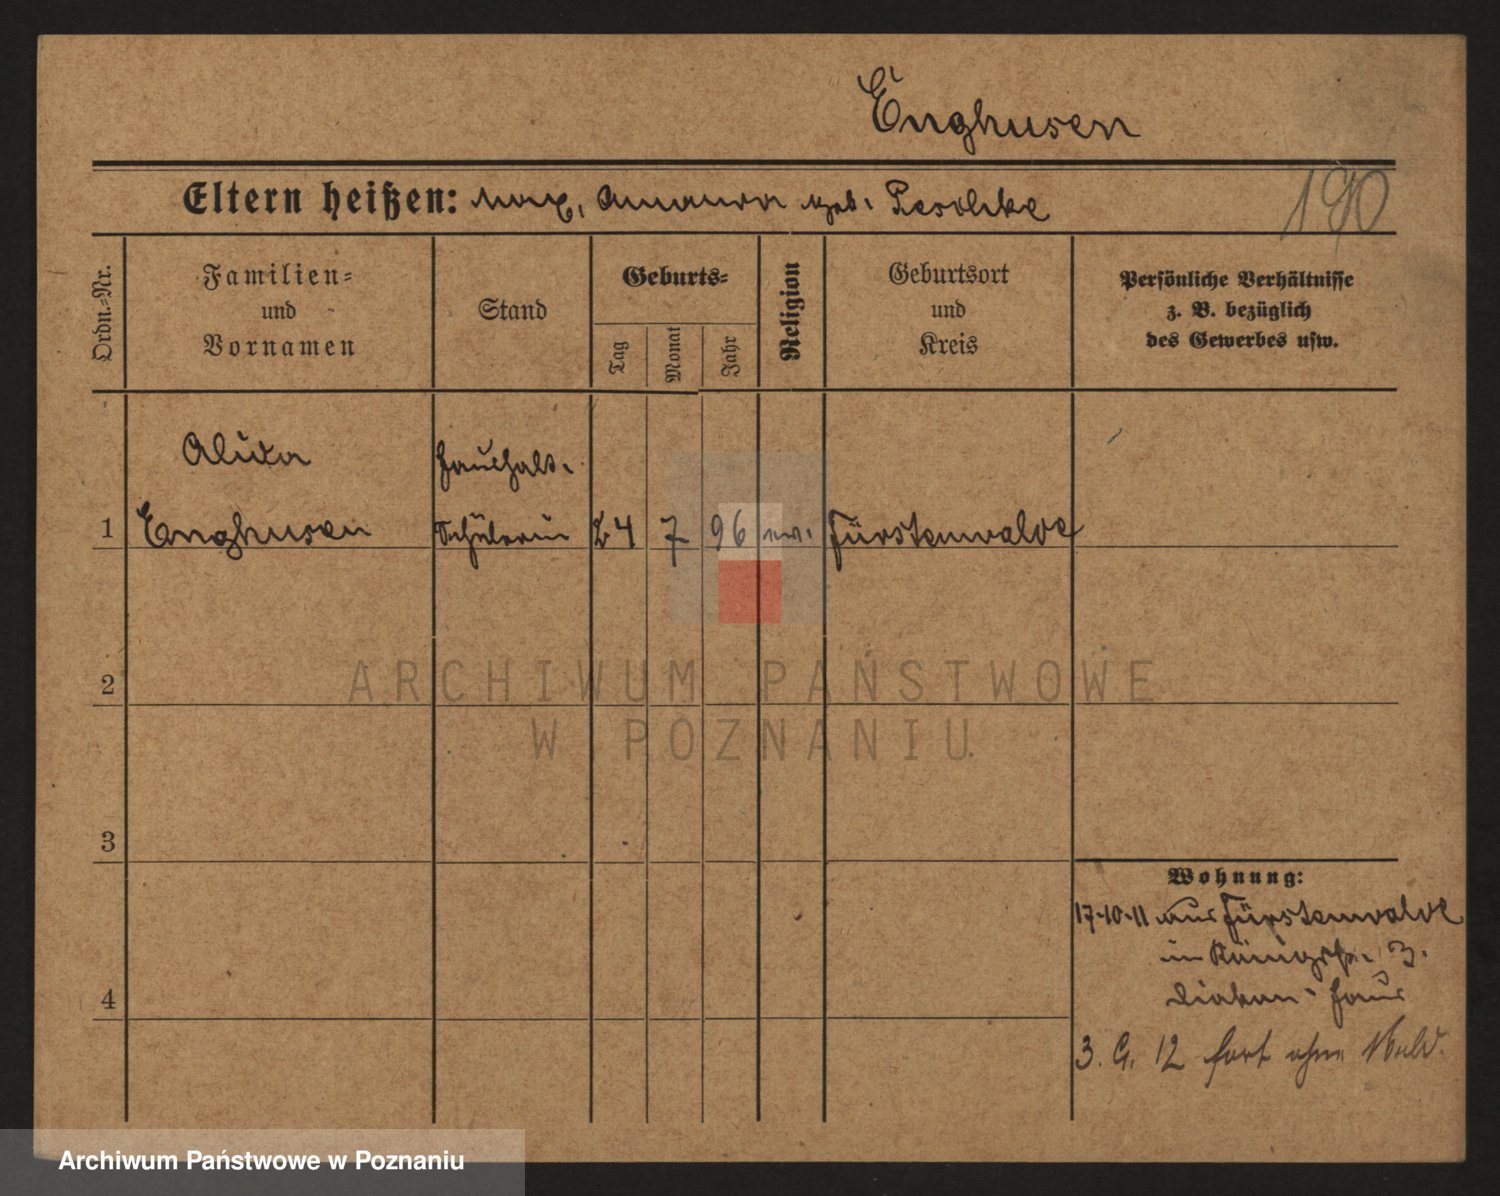 Enghusen
Eltern heißen: Max, Amanda geb. Peschke
190
Ordn.-Nr.
Familien-
und
Vornamen
Stand
Geburts-
Tag
Monat
Jahr
Religion
Geburtsort
und
Kreis
Persönliche Verhältnisse
z. B. bezüglich
des Gewerbes usw.
Alida
Haushalt-
1 Enghusen Schülerin 24 7 96 ev. Fürstenwalde
2
3
4
Wohnung:
17.10.11 aus Fürstenwalde
in Königstr. 3.
Diakon. Haus
3. 9. 12 fort ohne Meld.
ARCHIWUM PAŃSTWOWE
W POZNANIU
Archiwum Państwowe w Poznaniu